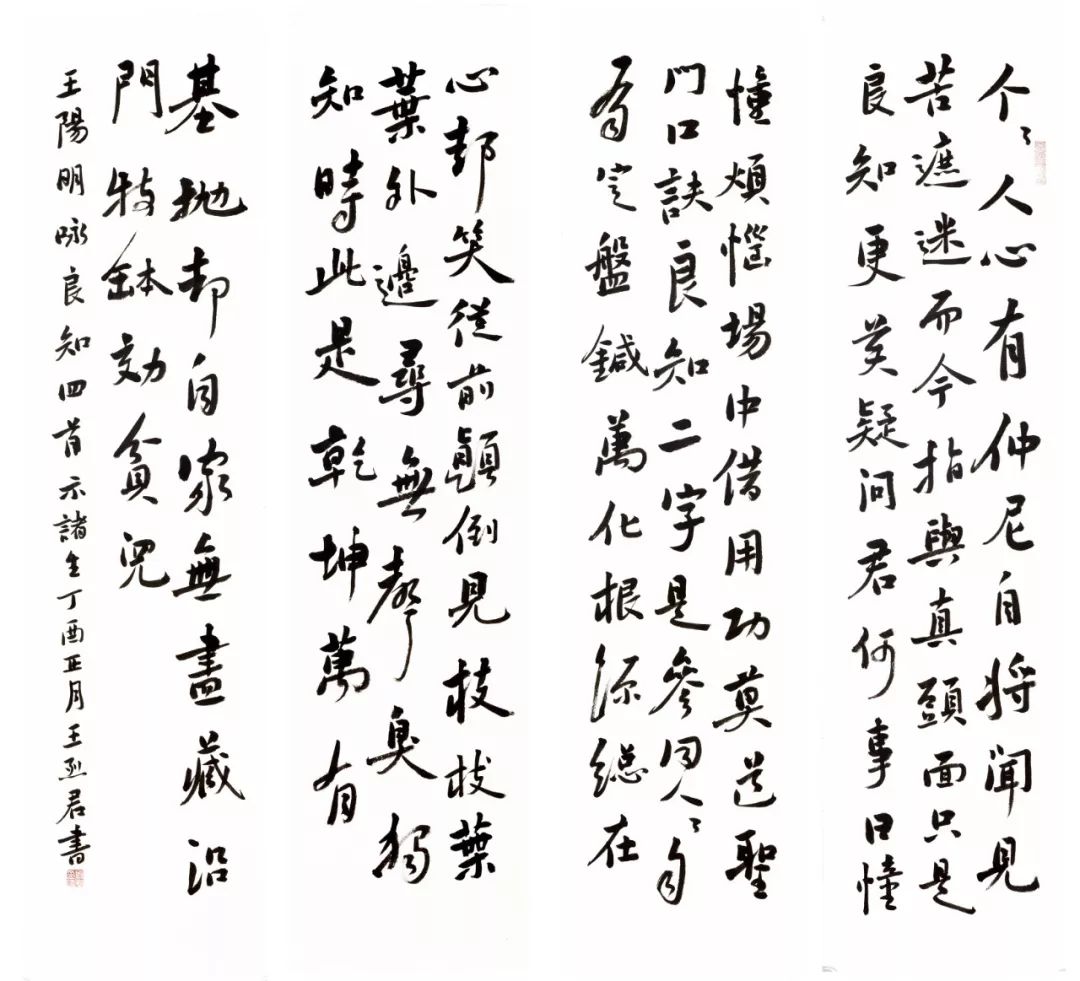 个〻人心有仲尼自将聞見
苦遮迷而今指與真頭面只是
良知更莫疑問君何事日憧
憧煩惱場中借用功莫道聖
門口訣良知二字是參同人〻自
有定盤鍼萬化根源總在
心却笑從前顛倒見枝枝葉
葉外邊尋無聲臭獨
知時此是乾坤萬有
基抛却自家無盡藏沿
門持鉢効貧兒
王陽明咏良知四首示諸生丁酉正月王烈君書